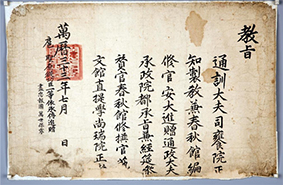 教旨
通訓大夫司饔院正
知製教兼春秋館編
修官安大進贈通政大夫
承政院都承旨兼經筵參
贊官春秋館修撰官藝
文館直提學尚瑞院正者
萬曆三十三年七月 日